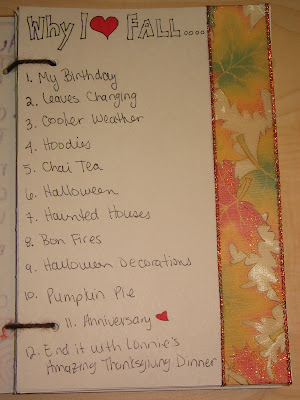 Why I ❤ FALL....
1. My Birthday
2. Leaves Changing
3. Cooler Weather
4. Hoodies
5. Chai Tea
6. Halloween
7. Haunted Houses
8. Bon Fires
9. Halloween Decorations
10. Pumpkin Pie
11. Anniversary ❤
12. End it with Lonnie's
Amazing Thanksgiving Dinner